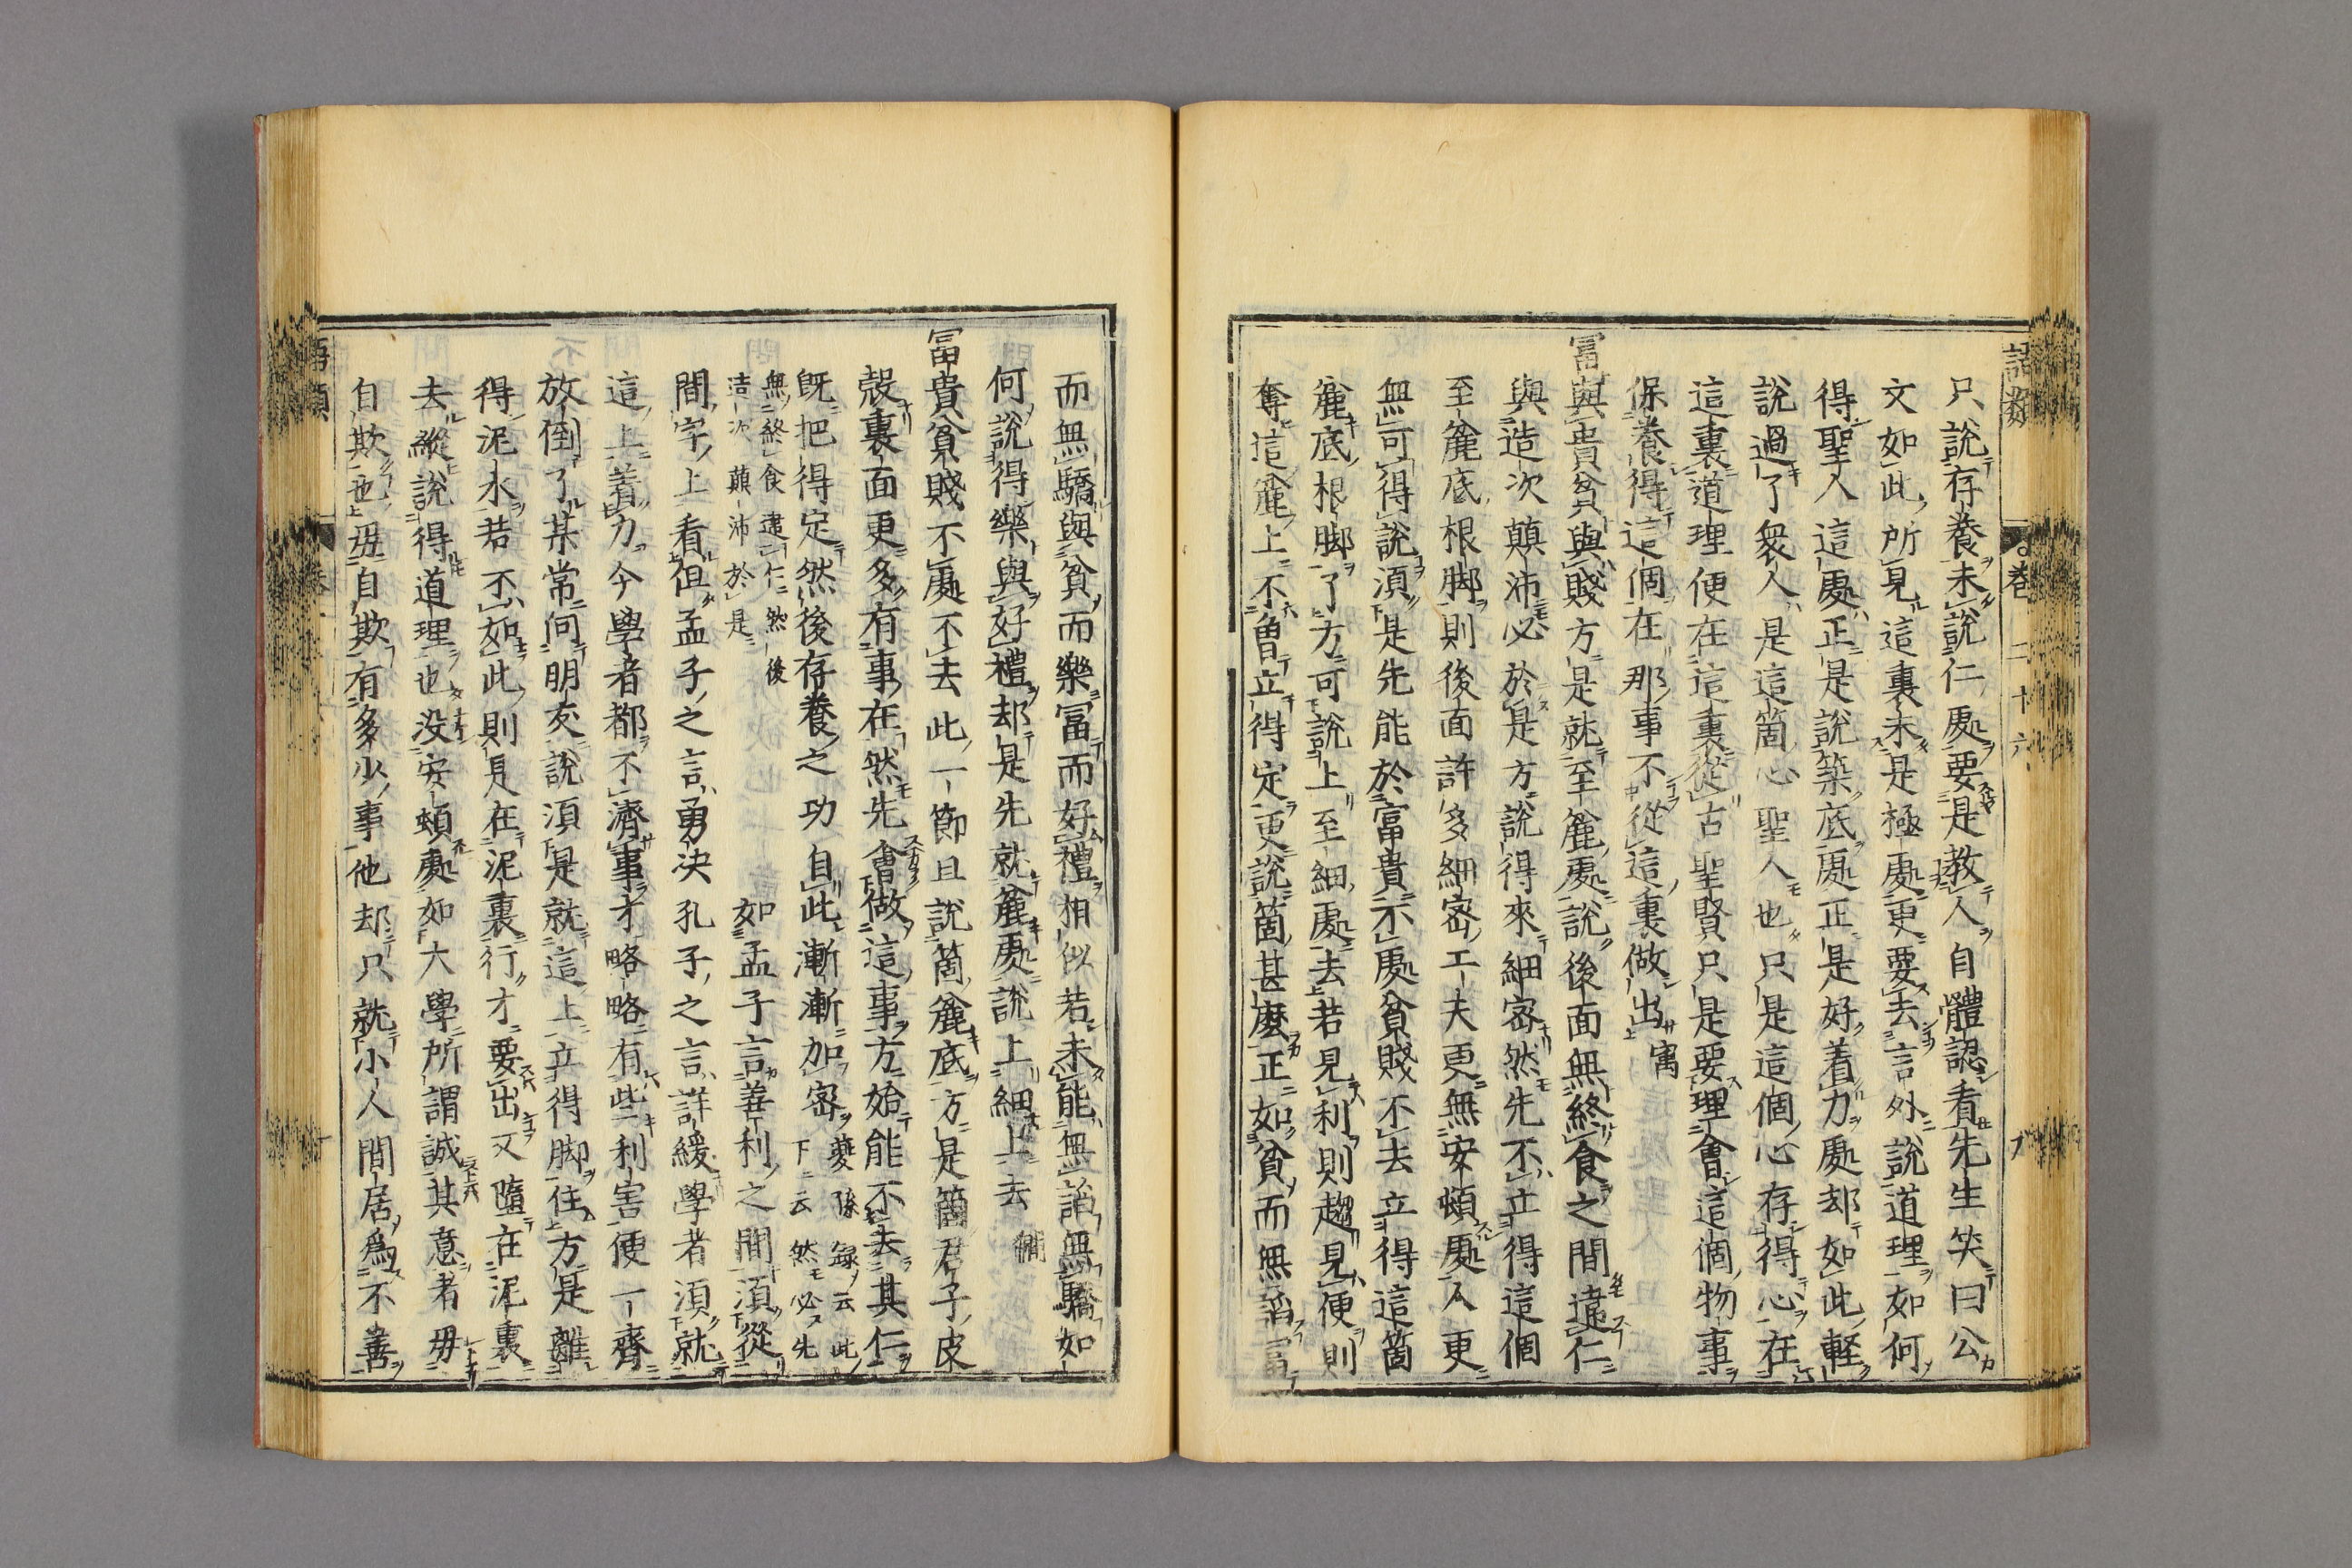 語類 卷二十六 九
只說存養未說仁處要是教人自體認看先生笑曰公
文如此所見這裏未是極處更要去言外說道理如何
得聖人這處正是說築底處正是好着力處却如此輕
說過了衆人是這箇心聖人也只是這個心存得心在
這裏道理便在這裏從古聖賢只是要理會這個物事
保養得這個在那事不從這裏做出寓
富與貴貧與賤方是就至麄處說後面無終食之間違仁
與造次顛沛必於是方說得來細密然先不立得這個
至麄底根脚則後面許多細密工夫更無安頓處人更
無可得說須是先能於富貴不處貧賤不去立得這箇
麄底根脚了方可說上至細處去若見利則趨見便則
奪這麄上不曾立得定更說箇甚麽正如貧而無諂富
而無驕與貧而樂富而好禮相似若未能無諂無驕如
何說得樂與好禮却是先就麄處說上細上去僩
富貴貧賤不處不去此一節且說箇麄底方是箇君子皮
殼裏面更多有事在然先會做這事方始能不去其仁
旣把得定然後存養之功自此漸漸加密夔孫録云此
下云然必先
無終食違仁然後
造次顛沛於是
如孟子言善利之間須從
間字上看但孟子之言勇決孔子之言詳緩學者須就
這上着力今學者都不濟事才略略有些利害便一齊
放倒了某常向朋友說須是就這上立得脚住方是離
得泥水若不如此則是在泥裏行才要出又墮在泥裏
去縱說得道理也没安頓處如大學所謂誠其意者毋
自欺也毋自欺有多少事他却只就小人間居爲不善